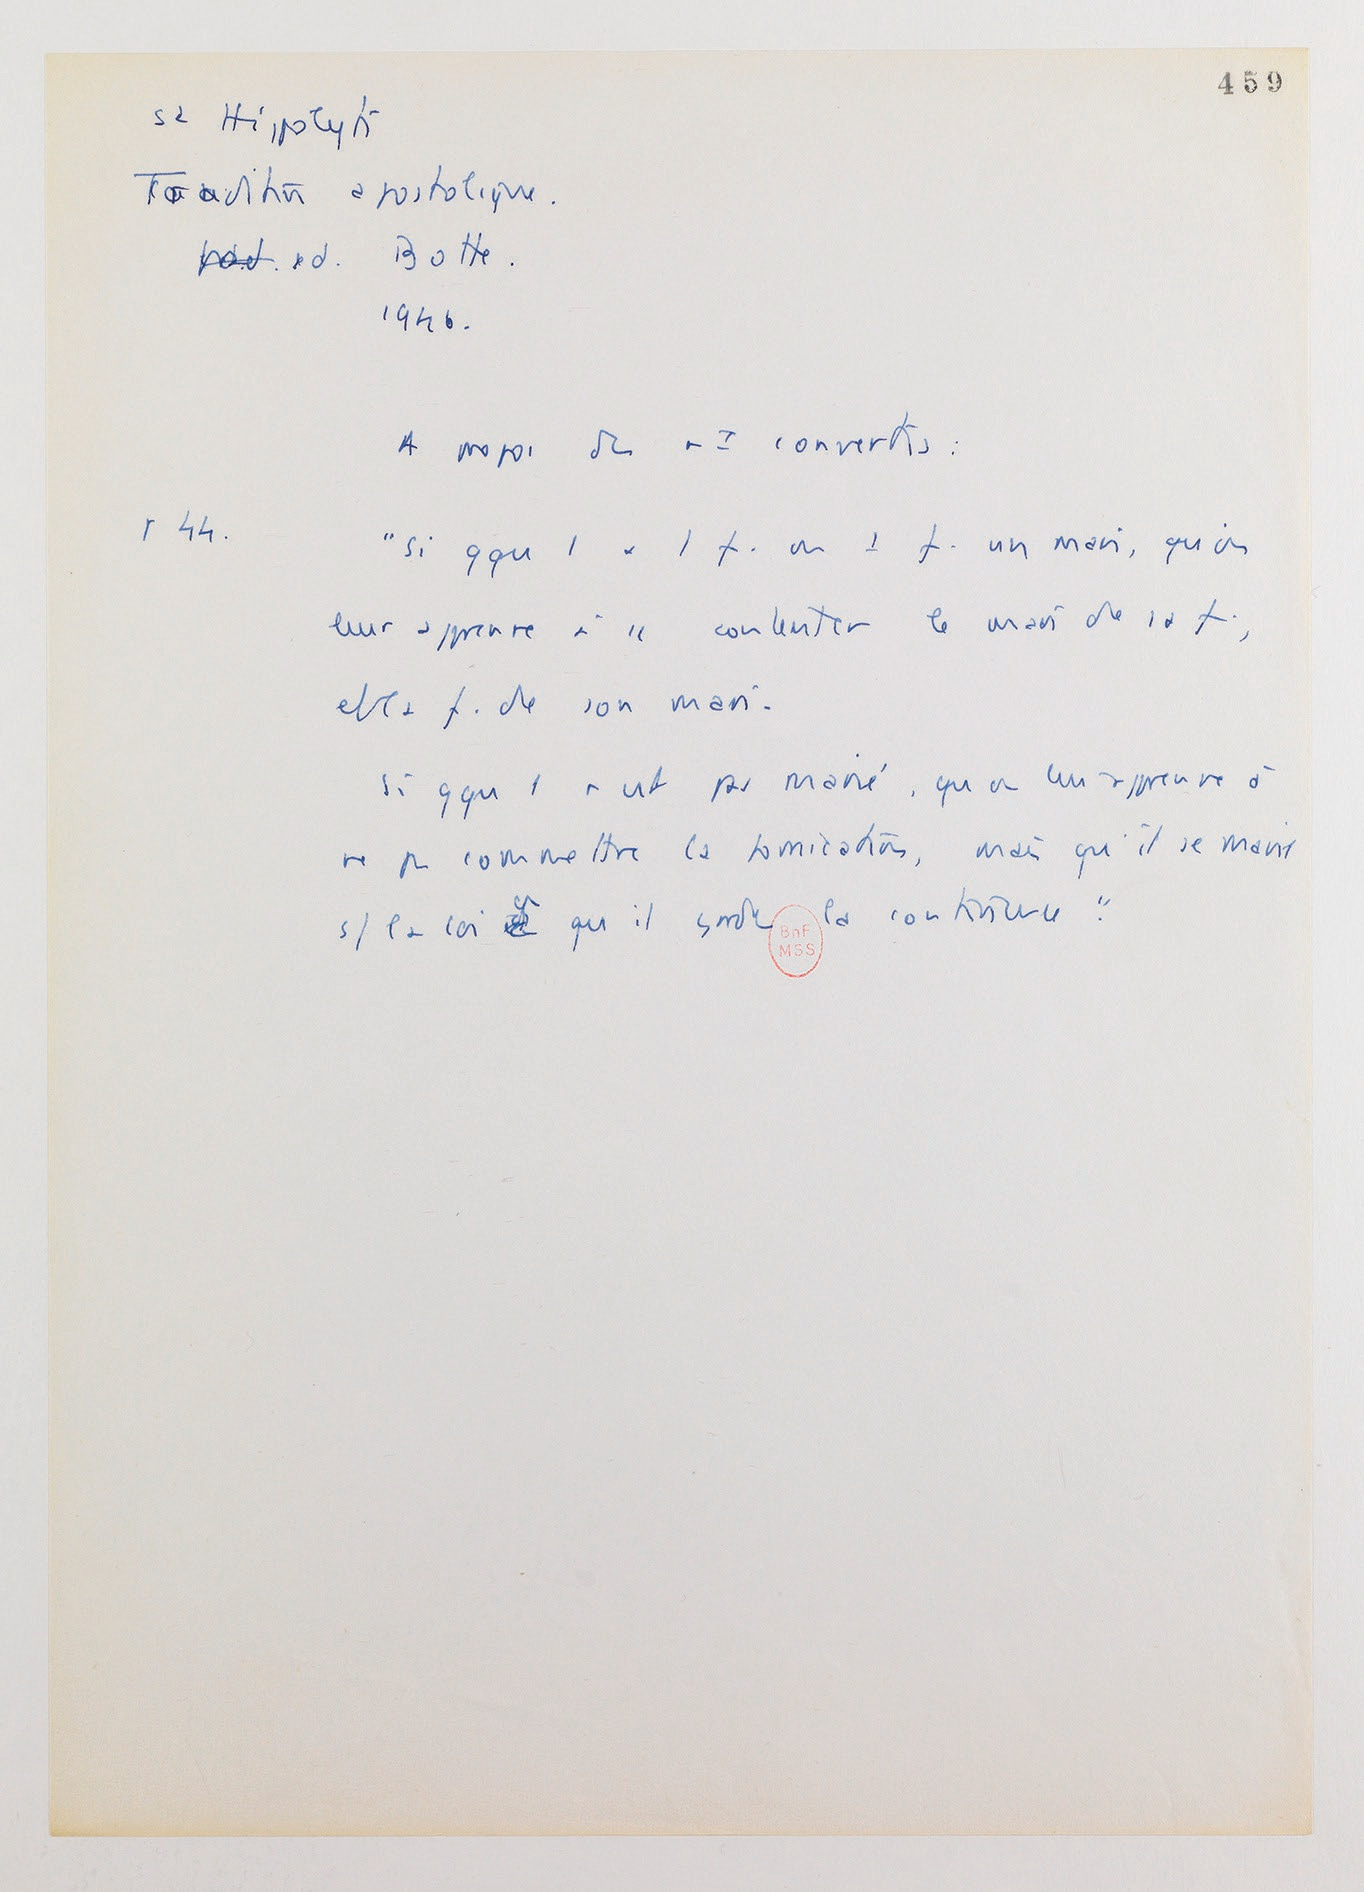 459
St Hippolyte
Tradition apostolique.
trad. ed. Botte.
1946.
A propos des nx convertis :
p 44.
"Si qqu 1 a 1 f. ou 1 f. un mari, qu'on
leur apprenne à se contenter le mari de sa f.,
et la f. de son mari.
Si qqu 1 n'est pas marié, qu'on leur apprenne à
ne pas commettre la fornication, mais qu'il se marie
s/ la loi qu'il garde la continence."
BnF
MSS